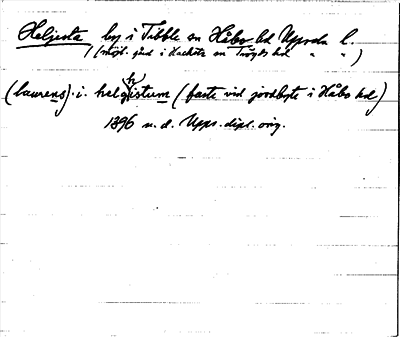 Heljesta by i Tibble sn Håbo hd Uppsala l.
(möjl. gård i Hacksta sn Trögds hd " " )
(laurens) . i . helgistum (faste vid jordbyte i Håbo hd)
1396 u.d. Upps. dipl. orig.